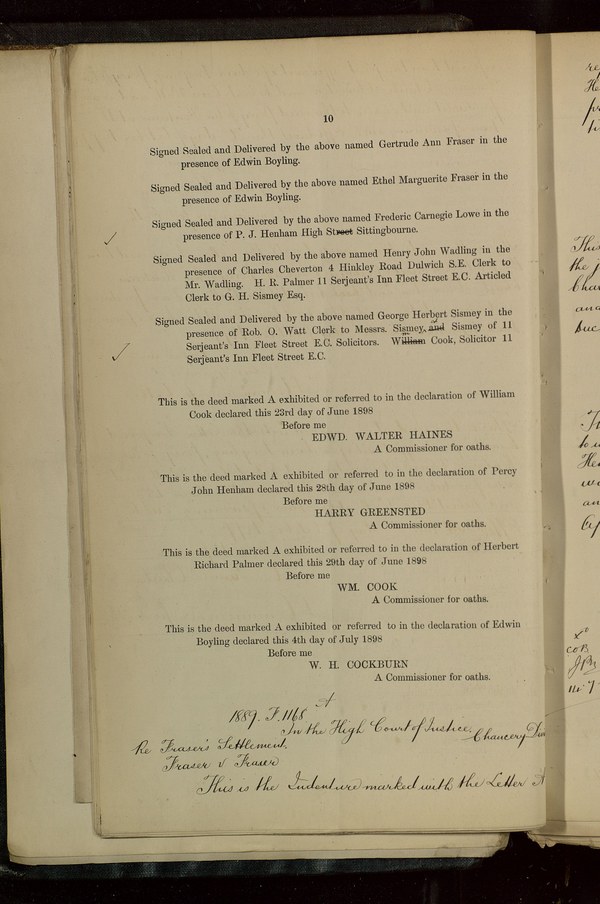 10
Signed Sealed and Delivered by the above named Gertrude Ann Fraser in the
presence of Edwin Boyling.
Signed Sealed and Delivered by the above named Ethel Marguerite Fraser in the
presence of Edwin Boyling.
Signed Sealed and Delivered by the above named Frederic Carnegie Lowe in the
presence of P. J. Henham High Street Sittingbourne.
Signed Sealed and Delivered by the above named Henry John Wadling in the
presence of Charles Cheverton 4 Hinkley Road Dulwich S.E. Clerk to
Mr. Wadling. H. R. Palmer 11 Serjeant's Inn Fleet Street E.C. Articled
Clerk to G. H. Sismey Esq.
Signed Sealed and Delivered by the above named George Herbert Sismey in the
presence of Rob. O. Watt Clerk to Messrs. Sismey, and Sismey of 11
Serjeant's Inn Fleet Street E.C. Solicitors. William Cook, Solicitor 11
Serjeant's Inn Fleet Street E.C.
This is the deed marked A exhibited or referred to in the declaration of William
Cook declared this 23rd day of June 1898
Before me
EDWD. WALTER HAINES
A Commissioner for oaths.
This is the deed marked A exhibited or referred to in the declaration of Percy
John Henham declared this 28th day of June 1898
Before me
HARRY GREENSTED
A Commissioner for oaths.
This is the deed marked A exhibited or referred to in the declaration of Herbert
Richard Palmer declared this 29th day of June 1898
Before me
WM. COOK
A Commissioner for oaths.
This is the deed marked A exhibited or referred to in the declaration of Edwin
Boyling declared this 4th day of July 1898
Before me
W. H. COCKBURN
A Commissioner for oaths.
A
1889. F. 1168
In the High Court of Justice, Chancery
Re Fraser's Settlement.
Fraser v Fraser
This is the Indenture marked with the Letter A